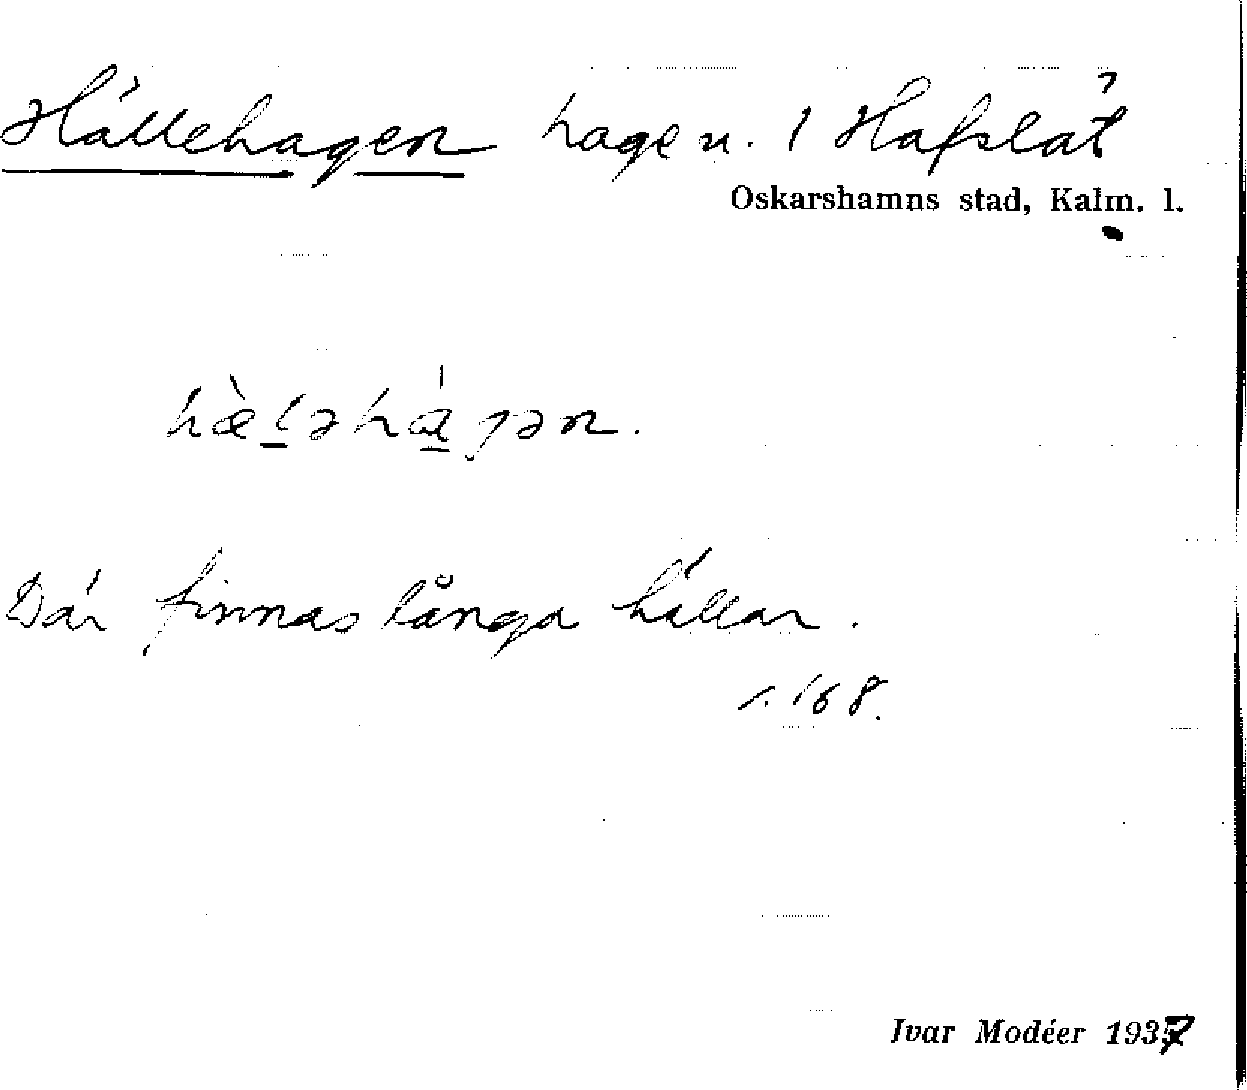 Hällehagen hage u. 1 Hafslät
Oskarshamns stad, Kalm. l.
hæ̀lehágen.
Där finnas långa hällar.
s. 168.
Ivar Modéer 1937